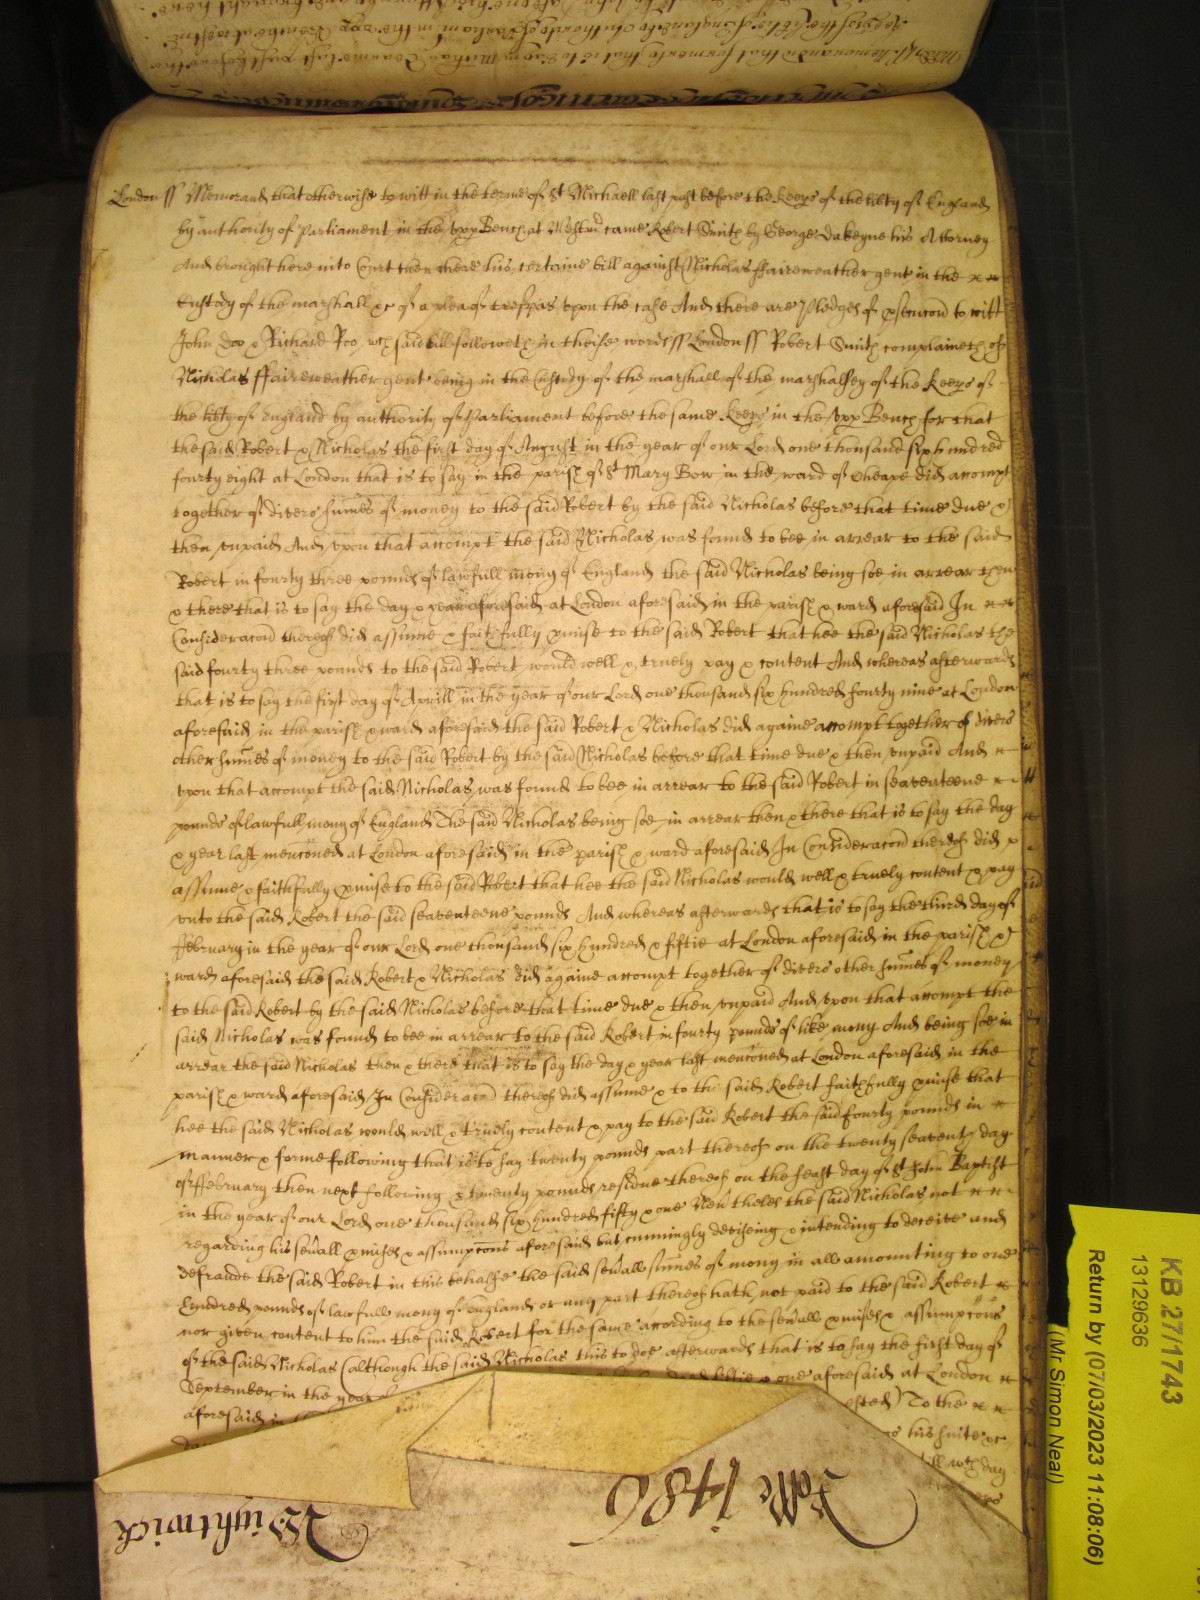 London ss Memorand that otherwise to witt in the terme of St Michaell last past before the keeps of the lib'ty of England
by authority of Parliament in the vpp Bench at Westmr came Robert Smith by George Dakeyne his Attorney
And brought here into Court then there his certaine bill against Nicholas ffaireweather gent in the
Custody of the marshall &c of a plea of trespas vpon the case And there are pledges of psecucon to witt
John Doo & Richard Roo, wch said bill followeth in theise words ss London ss Robert Smith complaineth of
Nicholas ffaireweather gent being in the Custody of the marshall of the marshalsey of the keeps of
the lib'ty of England by authority of Parliament before the same keeps in the vpp Bench for that
the said Robert & Nicholas the first day of August in the year of our Lord one thousand six hundred
fourty eight at London that is to say in the parish of St Mary Bow in the ward of Cheape did accompt
together of divers sumes of money to the said Robert by the said Nicholas before that time due &
then vnpaid And vpon that accompt the said Nicholas was found to bee in arrear to the said
Robert in fourty three pounds of lawfull mony of England the said Nicholas being soe in arrear then
& there that is to say the day & year aforesaid at London aforesaid in the parish & ward aforesaid In
Consideracon thereof did assume & faithfully pmise to the said Robert that hee the said Nicholas the
said fourty three pounds to the said Robert would well & truely pay & content And whereas afterwards
that is to say the first day of Aprill in the year of our Lord one thousand six hundred fourty nine at London
aforesaid in the parish & ward aforesaid the said Robert & Nicholas did againe accompt together of divers
other sumes of money to the said Robert by the said Nicholas before that time due & then vnpaid And
vpon that accompt the said Nicholas was found to bee in arrear to the said Robert in seaventeene
pounds of lawfull mony of England The said Nicholas being soe in arrear then & there that is to say the day
& year last menconed at London aforesaid in the parish & ward aforesaid In Consideracon thereof did
assume & faithfully pmise to the said Robert that hee the said Nicholas would well & truely content & pay
vnto the said Robert the said seaventeene pounds And whereas afterwards that is to say the third day of
ffebruary in the year of our Lord one thousand six hundred & fiftie at London aforesaid in the parish &
ward aforesaid the said Robert & Nicholas did againe accompt together of divers other sumes of money
to the said Robert by the said Nicholas before that time due & then vnpaid And vpon that accompt the
said Nicholas was found to bee in arrear to the said Robert in fourty pounds of like mony And being soe in
arrear the said Nicholas then & there that is to say the day & year last menconed at London aforesaid in the
parish & ward aforesaid In Consideracon thereof did assume & to the said Robert faithfully pmise that
hee the said Nicholas would well & truely content & pay to the said Robert the said fourty pounds in
manner & forme following that is to say twenty pounds part thereof on the twenty seaventh day
of ffebruary then next following & twenty pounds residue thereof on the feast day of St John Baptist
in the year of our Lord one thousand six hundred fifty & one Nev'theles the said Nicholas not
regarding his sev'all pmises & assumpcons aforesaid but cunningly deviseing & intending to deceive and
defraude the said Robert in this behalfe the said sev'all sumes of mony in all amounting to one
hundred pounds of lawfull mony of England or any part thereof hath not paid to the said Robert
nor given content to him the said Robert for the same according to the sev'all pmises & assumpcons
of the said Nicholas (although the said Nicholas this to doe afterwards that is to say the first day of
September in the year of & one aforesaid at London
aforesaid in ested) To the
his suite &c
day
Wightwick
Rolle 1486
KB 27/1743
13129636
Return by (07/03/2023 11:08:06)
(Mr Simon Neal)